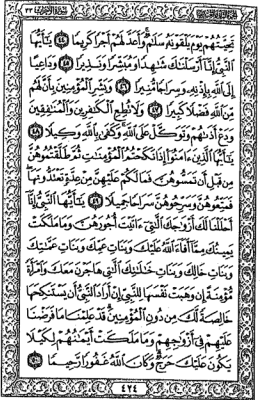 سورة الأحزاب ٣٣
تَحِيَّتُهُمْ يَوْمَ يَلْقَوْنَهُۥ سَلَٰمٌ وَأَعَدَّ لَهُمْ أَجْرًا كَرِيمًا ٤٤ يَٰٓأَيُّهَا
ٱلنَّبِىُّ إِنَّآ أَرْسَلْنَٰكَ شَٰهِدًا وَمُبَشِّرًا وَنَذِيرًا ٤٥ وَدَاعِيًا
إِلَى ٱللَّهِ بِإِذْنِهِۦ وَسِرَاجًا مُّنِيرًا ٤٦ وَبَشِّرِ ٱلْمُؤْمِنِينَ بِأَنَّ لَهُم
مِّنَ ٱللَّهِ فَضْلًا كَبِيرًا ٤٧ وَلَا تُطِعِ ٱلْكَٰفِرِينَ وَٱلْمُنَٰفِقِينَ
وَدَعْ أَذَىٰهُمْ وَتَوَكَّلْ عَلَى ٱللَّهِ وَكَفَىٰ بِٱللَّهِ وَكِيلًا ٤٨
يَٰٓأَيُّهَا ٱلَّذِينَ ءَامَنُوٓا۟ إِذَا نَكَحْتُمُ ٱلْمُؤْمِنَٰتِ ثُمَّ طَلَّقْتُمُوهُنَّ
مِن قَبْلِ أَن تَمَسُّوهُنَّ فَمَا لَكُمْ عَلَيْهِنَّ مِنْ عِدَّةٍ تَعْتَدُّونَهَا
فَمَتِّعُوهُنَّ وَسَرِّحُوهُنَّ سَرَاحًا جَمِيلًا ٤٩ يَٰٓأَيُّهَا ٱلنَّبِىُّ إِنَّآ
أَحْلَلْنَا لَكَ أَزْوَٰجَكَ ٱلَّٰتِىٓ ءَاتَيْتَ أُجُورَهُنَّ وَمَا مَلَكَتْ
يَمِينُكَ مِمَّآ أَفَآءَ ٱللَّهُ عَلَيْكَ وَبَنَاتِ عَمِّكَ وَبَنَاتِ عَمَّٰتِكَ
وَبَنَاتِ خَالِكَ وَبَنَاتِ خَٰلَٰتِكَ ٱلَّٰتِى هَاجَرْنَ مَعَكَ وَٱمْرَأَةً
مُّؤْمِنَةً إِن وَهَبَتْ نَفْسَهَا لِلنَّبِىِّ إِنْ أَرَادَ ٱلنَّبِىُّ أَن يَسْتَنكِحَهَا
خَالِصَةً لَّكَ مِن دُونِ ٱلْمُؤْمِنِينَ قَدْ عَلِمْنَا مَا فَرَضْنَا
عَلَيْهِمْ فِىٓ أَزْوَٰجِهِمْ وَمَا مَلَكَتْ أَيْمَٰنُهُمْ لِكَيْلَا
يَكُونَ عَلَيْكَ حَرَجٌ وَكَانَ ٱللَّهُ غَفُورًا رَّحِيمًا ٥٠
٤٢٤